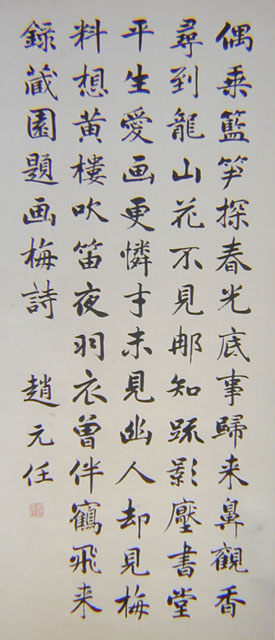 偶乗籃笋探春光底事歸来鼻觀香
尋到龍山花不見那知踈影壓書堂
平生愛画更憐才未見幽人却見梅
料想黄樓吹笛夜羽衣曾伴鶴飛来
錄蔵園題画梅詩 趙元任